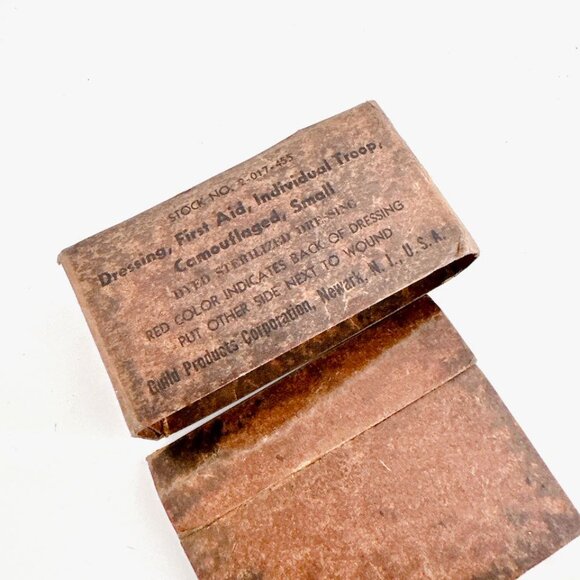 STOCK NO. 2-017-455
Dressing, First Aid, Individual Troop,
Camouflaged, Small
DYED STERILIZED DRESSING
RED COLOR INDICATES BACK OF DRESSING
PUT OTHER SIDE NEXT TO WOUND
Guild Products Corporation, Newark, N. J., U. S. A.